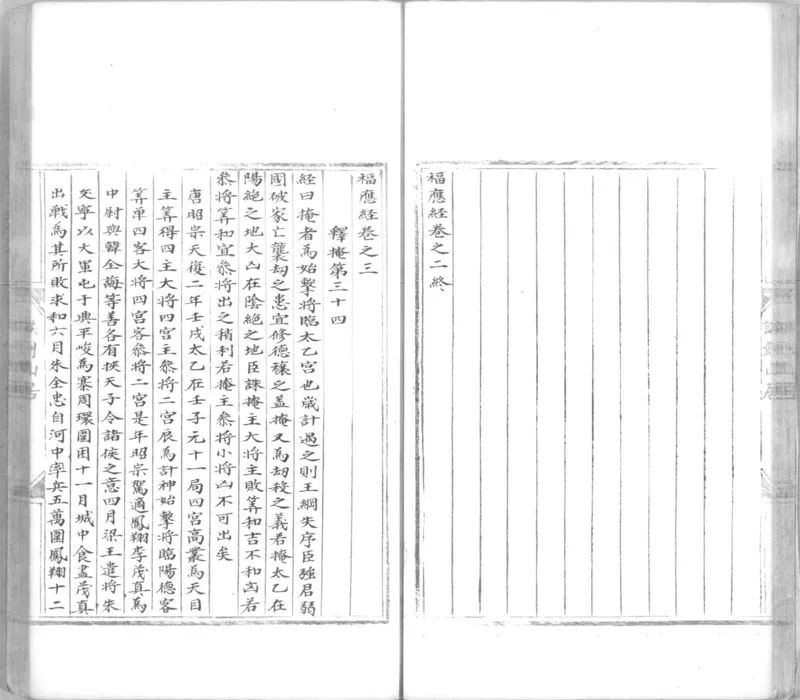 福應經卷之二終
福應經卷之三
釋掩第三十四
經曰掩者為始擊將臨太乙宮也歲計遇之則王綱失序臣強君弱
國破家亡襲刼之患宜修德禳之蓋掩又為刼殺之義若掩太乙在
陽絕之地大凶在陰絕之地臣誅掩主大將主敗筭和吉不和凶若
叅將筭和宜叅將出之稍利若掩主叅將小將凶不可出矣
唐昭宗天復二年壬戌太乙在壬子元十一局四宮高叢為天目
主筭得四主大將四宮主叅將二宮辰為計神始擊將臨陽德客
筭單四客大將四宮客叅將二宮是年昭宗駕適鳳翔李茂真為
中尉與韓全誨等善各有挾天子令諸侯之意四月梁王遣將朱
文寧以大軍屯于興平峻為寨周環圍困十一月城中食盡茂真
出戰為其所敗求和六月朱全忠自河中率兵五萬圍鳳翔十二